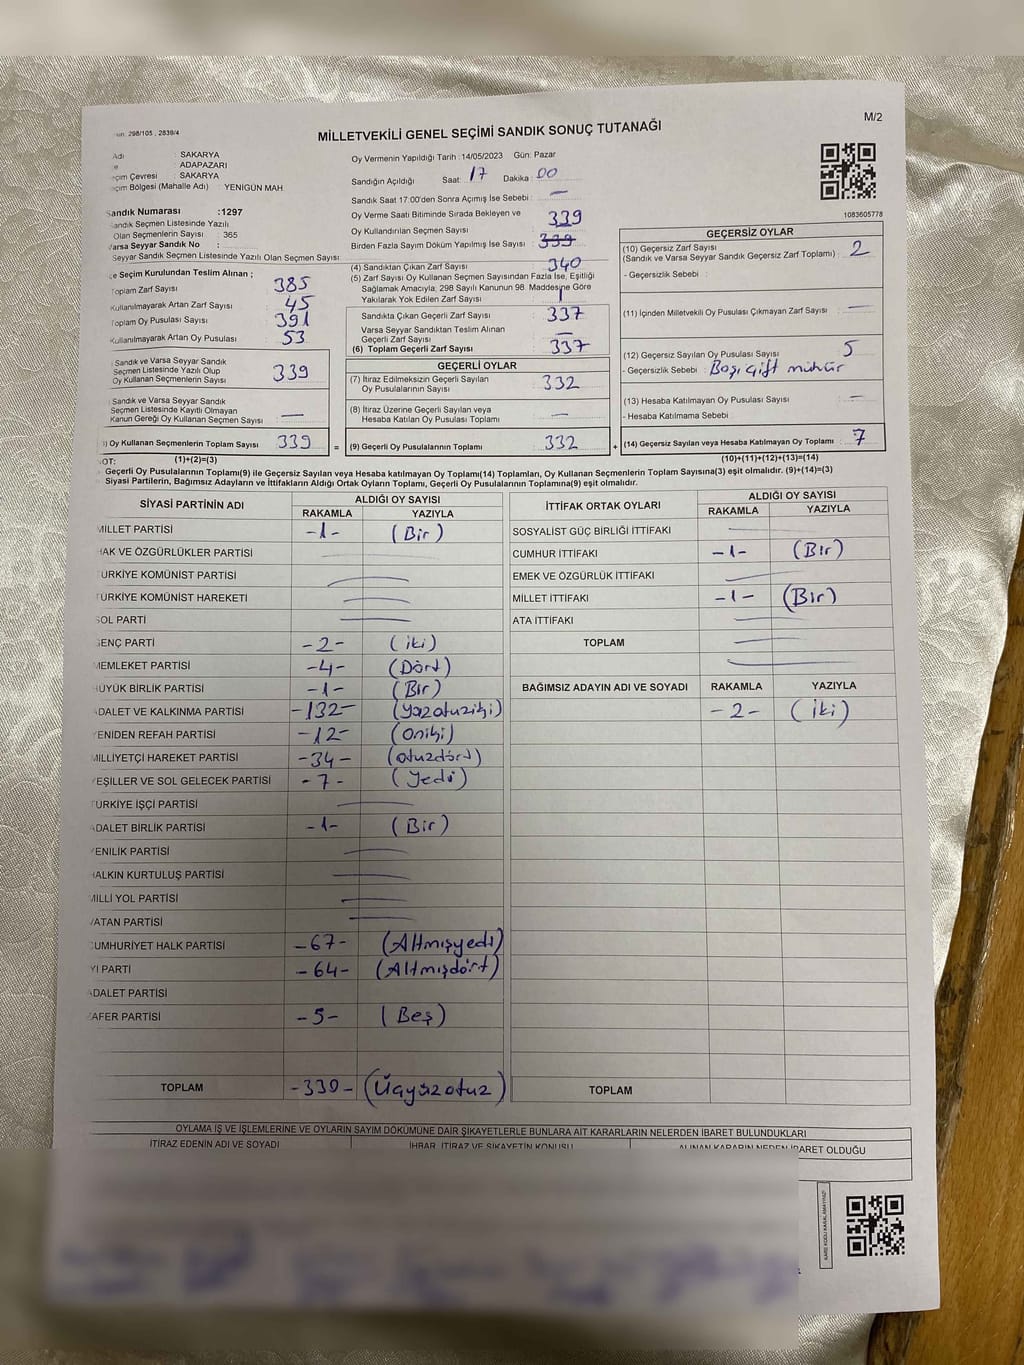 un. 298/105 , 2839/4
M/2
MİLLETVEKİLİ GENEL SEÇİMİ SANDIK SONUÇ TUTANAĞI
Adı : SAKARYA
: ADAPAZARI
eçim Çevresi : SAKARYA
eçim Bölgesi (Mahalle Adı) : YENİGÜN MAH
Sandık Numarası :1297
Sandık Seçmen Listesinde Yazılı
Olan Seçmenlerin Sayısı : 365
Varsa Seyyar Sandık No :
Seyyar Sandık Seçmen Listesinde Yazılı Olan Seçmen Sayısı:
çe Seçim Kurulundan Teslim Alınan ;
Toplam Zarf Sayısı 385
Kullanılmayarak Artan Zarf Sayısı 45
Toplam Oy Pusulası Sayısı 391
Kullanılmayarak Artan Oy Pusulası 53
Sandık ve Varsa Seyyar Sandık
Seçmen Listesinde Yazılı Olup
Oy Kullanan Seçmenlerin Sayısı 339
Sandık ve Varsa Seyyar Sandık
Seçmen Listesinde Kayıtlı Olmayan
Kanun Gereği Oy Kullanan Seçmen Sayısı —
) Oy Kullanan Seçmenlerin Toplam Sayısı 339 =
(1)+(2)=(3)
Oy Vermenin Yapıldığı Tarih :14/05/2023 Gün: Pazar
Sandığın Açıldığı Saat: 17 Dakika : 00
Sandık Saat 17:00'den Sonra Açımış İse Sebebi : —
Oy Verme Saati Bitiminde Sırada Bekleyen ve
Oy Kullandırılan Seçmen Sayısı 339
Birden Fazla Sayım Döküm Yapılmış İse Sayısı : 339
(4) Sandıktan Çıkan Zarf Sayısı 340
(5) Zarf Sayısı Oy Kullanan Seçmen Sayısından Fazla İse, Eşitliği
Sağlamak Amacıyla; 298 Sayılı Kanunun 98. Maddesine Göre
Yakılarak Yok Edilen Zarf Sayısı : 1
Sandıkta Çıkan Geçerli Zarf Sayısı : 337
Varsa Seyyar Sandıktan Teslim Alınan
Geçerli Zarf Sayısı : —
(6) Toplam Geçerli Zarf Sayısı : 337
GEÇERLİ OYLAR
(7) İtiraz Edilmeksizin Geçerli Sayılan
Oy Pusulalarının Sayısı : 332
(8) İtiraz Üzerine Geçerli Sayılan veya
Hesaba Katılan Oy Pusulası Toplamı : —
(9) Geçerli Oy Pusulalarının Toplamı : 332 +
1083605778
GEÇERSİZ OYLAR
(10) Geçersiz Zarf Sayısı
(Sandık ve Varsa Seyyar Sandık Geçersiz Zarf Toplamı) : 2
- Geçersizlik Sebebi :
(11) İçinden Milletvekili Oy Pusulası Çıkmayan Zarf Sayısı : —
(12) Geçersiz Sayılan Oy Pusulası Sayısı : 5
- Geçersizlik Sebebi : Bazı çift mühür
(13) Hesaba Katılmayan Oy Pusulası Sayısı : —
- Hesaba Katılmama Sebebi :
(14) Geçersiz Sayılan veya Hesaba Katılmayan Oy Toplamı : 7
(10)+(11)+(12)+(13)=(14)
OT:
Geçerli Oy Pusulalarının Toplamı(9) ile Geçersiz Sayılan veya Hesaba katılmayan Oy Toplamı(14) Toplamları, Oy Kullanan Seçmenlerin Toplam Sayısına(3) eşit olmalıdır. (9)+(14)=(3)
Siyasi Partilerin, Bağımsız Adayların ve İttifakların Aldığı Ortak Oyların Toplamı, Geçerli Oy Pusulalarının Toplamına(9) eşit olmalıdır.
SİYASİ PARTİNİN ADI ALDIĞI OY SAYISI
RAKAMLA YAZIYLA
MİLLET PARTİSİ -1- (Bir)
HAK VE ÖZGÜRLÜKLER PARTİSİ —
TÜRKİYE KOMÜNİST PARTİSİ —
TÜRKİYE KOMÜNİST HAREKETİ —
SOL PARTİ —
GENÇ PARTİ -2- (iki)
MEMLEKET PARTİSİ -4- (Dört)
BÜYÜK BİRLİK PARTİSİ -1- (Bir)
ADALET VE KALKINMA PARTİSİ -132- (yüzotuziki)
YENİDEN REFAH PARTİSİ -12- (oniki)
MİLLİYETÇİ HAREKET PARTİSİ -34- (otuzdört)
YEŞİLLER VE SOL GELECEK PARTİSİ -7- (Yedi)
TÜRKİYE İŞÇİ PARTİSİ —
ADALET BİRLİK PARTİSİ -1- (Bir)
YENİLİK PARTİSİ —
HALKIN KURTULUŞ PARTİSİ —
MİLLİ YOL PARTİSİ —
VATAN PARTİSİ —
CUMHURİYET HALK PARTİSİ -67- (Altmışyedi)
İYİ PARTİ -64- (Altmışdört)
ADALET PARTİSİ
ZAFER PARTİSİ -5- (Beş)
TOPLAM -330- (Üçyüzotuz)
İTTİFAK ORTAK OYLARI ALDIĞI OY SAYISI
RAKAMLA YAZIYLA
SOSYALİST GÜÇ BİRLİĞİ İTTİFAKI —
CUMHUR İTTİFAKI -1- (Bir)
EMEK VE ÖZGÜRLÜK İTTİFAKI —
MİLLET İTTİFAKI -1- (Bir)
ATA İTTİFAKI —
TOPLAM —
BAĞIMSIZ ADAYIN ADI VE SOYADI RAKAMLA YAZIYLA
-2- (iki)
TOPLAM
OYLAMA İŞ VE İŞLEMLERİNE VE OYLARIN SAYIM DÖKÜMÜNE DAİR ŞİKAYETLERLE BUNLARA AİT KARARLARIN NELERDEN İBARET BULUNDUKLARI
İTİRAZ EDENİN ADI VE SOYADI İHBAR, İTİRAZ VE ŞİKAYETİN KONUSU ALINAN KARARIN NEDEN İBARET OLDUĞU
KARE KODU KARALAMAYINIZ!